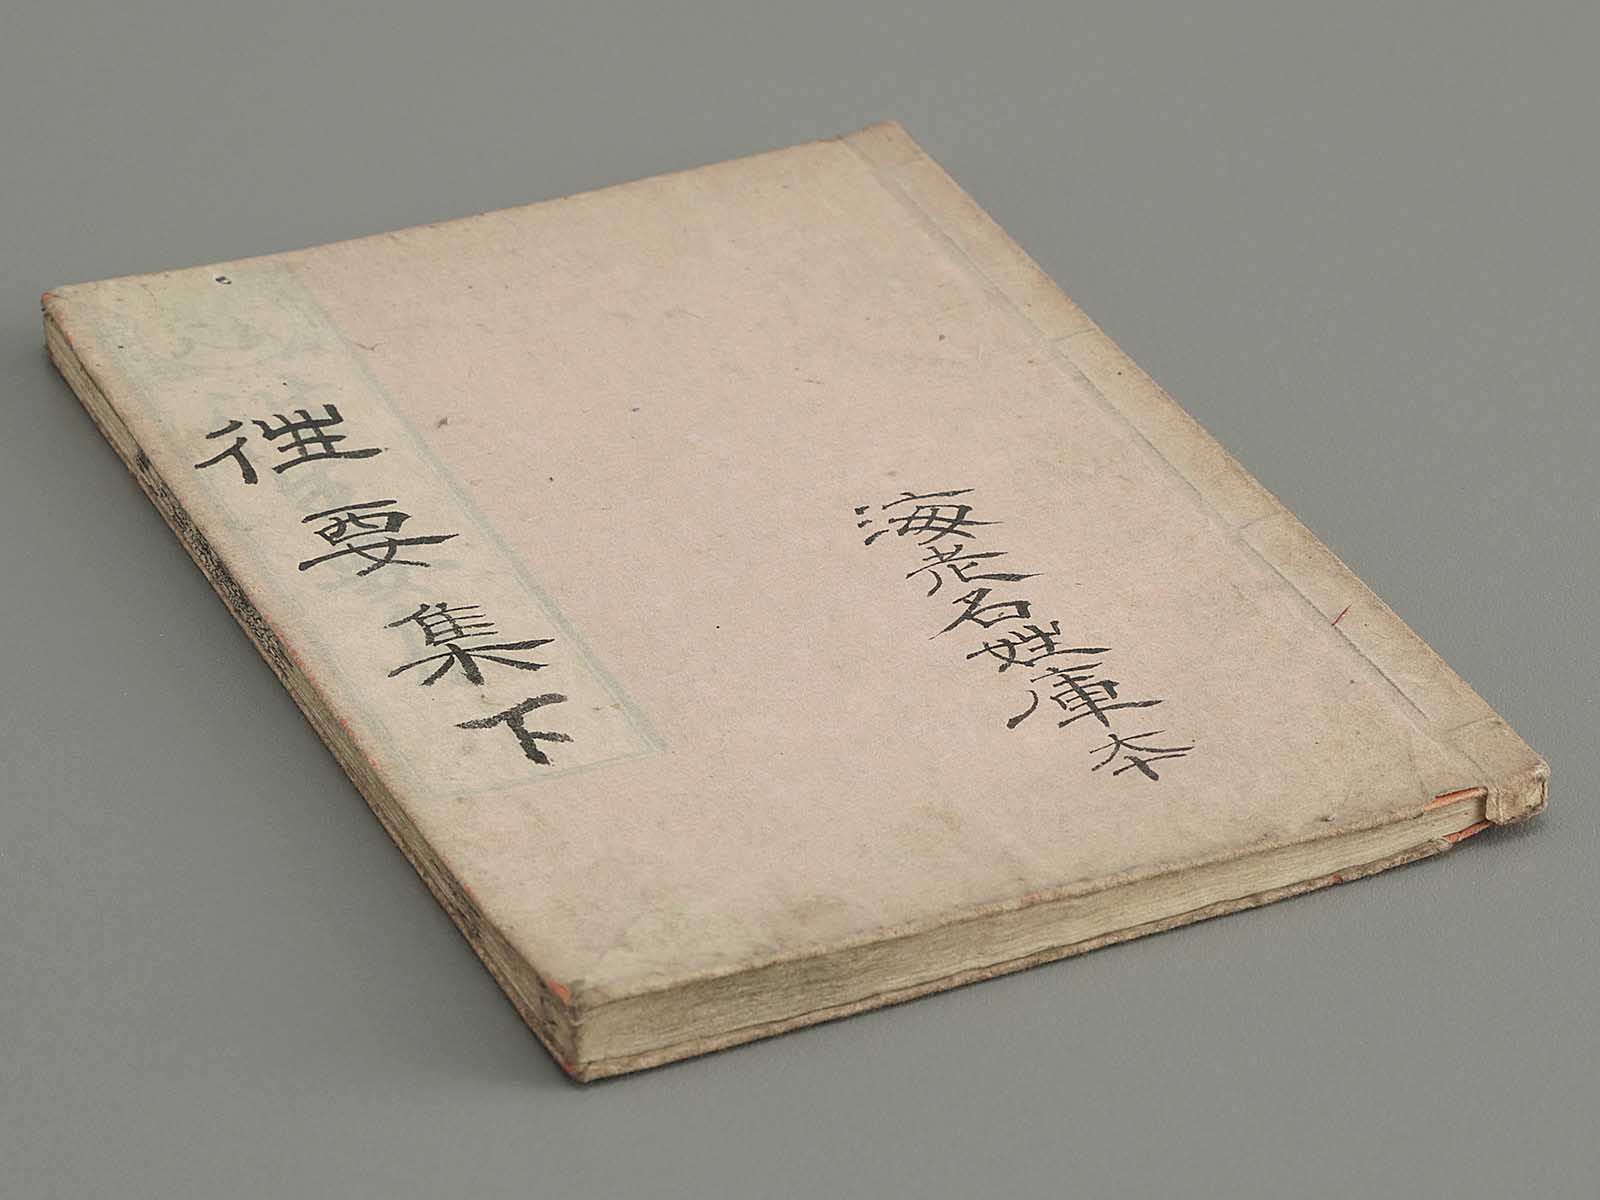 海老名姓庫本
徃要集下